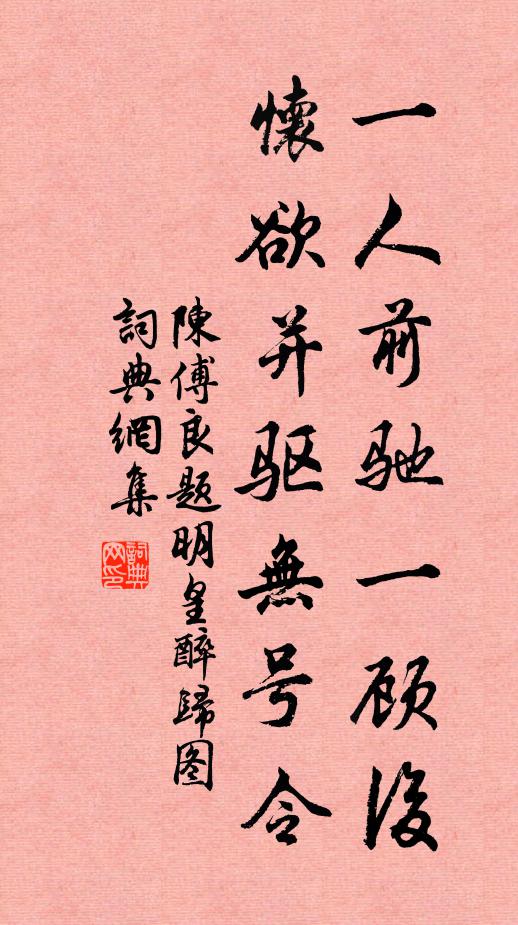 一人前驰一顾後
懷欲并驱無号令
陳傅良题明皇醉歸图
詞典網集
詞典网印